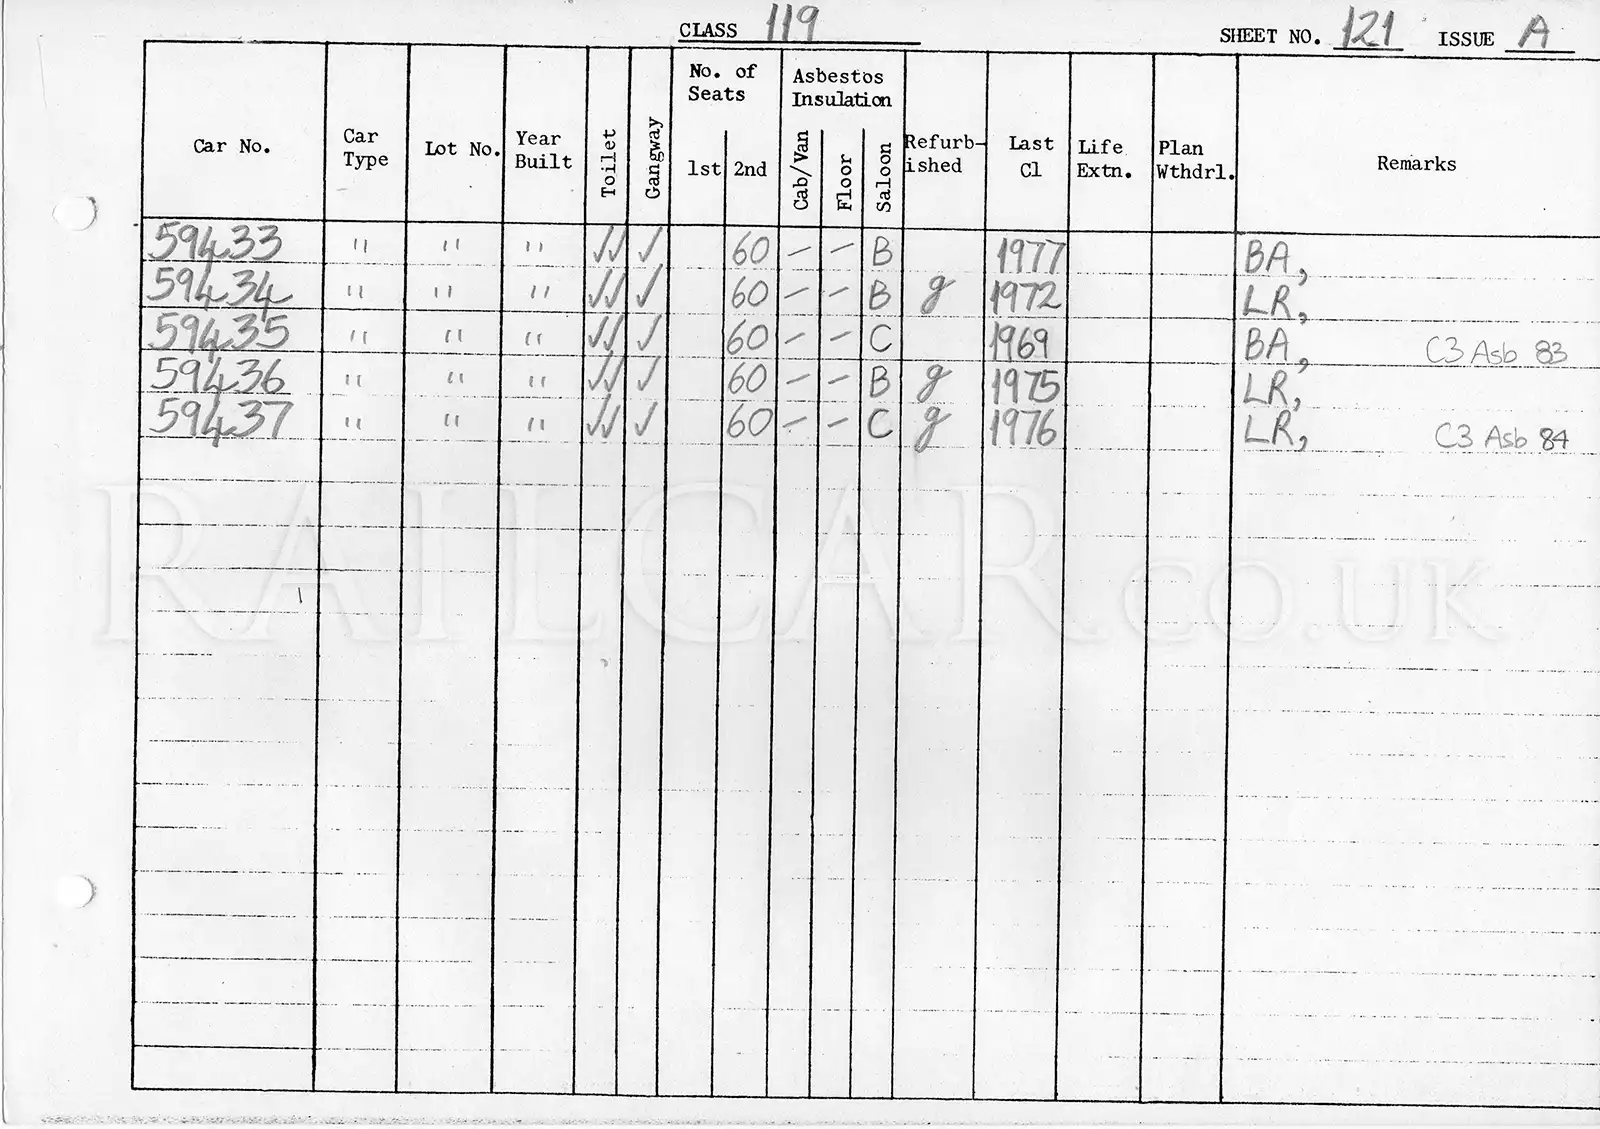 CLASS 119 SHEET NO. 121 ISSUE A
Car No. Car Type Lot No. Year Built Toilet Gangway No. of Seats 1st 2nd Asbestos Insulation Cab/Van Floor Saloon Refurb-ished Last Cl Life Extn. Plan Wthdrl. Remarks
59433 " " " ✓✓ ✓ 60 – – B 1977 BA,
59434 " " " ✓✓ ✓ 60 – – B g 1972 LR,
59435 " " " ✓✓ ✓ 60 – – C 1969 BA, C3 Asb 83
59436 " " " ✓✓ ✓ 60 – – B g 1975 LR,
59437 " " " ✓✓ ✓ 60 – – C g 1976 LR, C3 Asb 84
RAILCAR.CO.UK